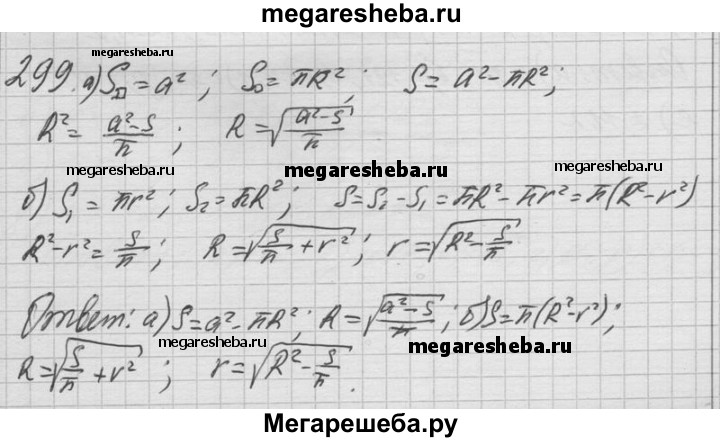 megaresheba.ru
megaresheba.ru
299. а) S□ = a²; S○ = πR²; S = a² - πR²;
R² = (a² - S)/π; R = √((a² - S)/π)
megaresheba.ru megaresheba.ru megaresheba.ru
б) S₁ = πr²; S₂ = πR²; S = S₂ - S₁ = πR² - πr² = π(R² - r²)
R² - r² = S/π; R = √(S/π + r²); r = √(R² - S/π)
Ответ: а) S = a² - πR²; R = √((a² - S)/π); б) S = π(R² - r²);
megaresheba.ru megaresheba.ru
R = √(S/π + r²); r = √(R² - S/π).
Мегарешеба.ру